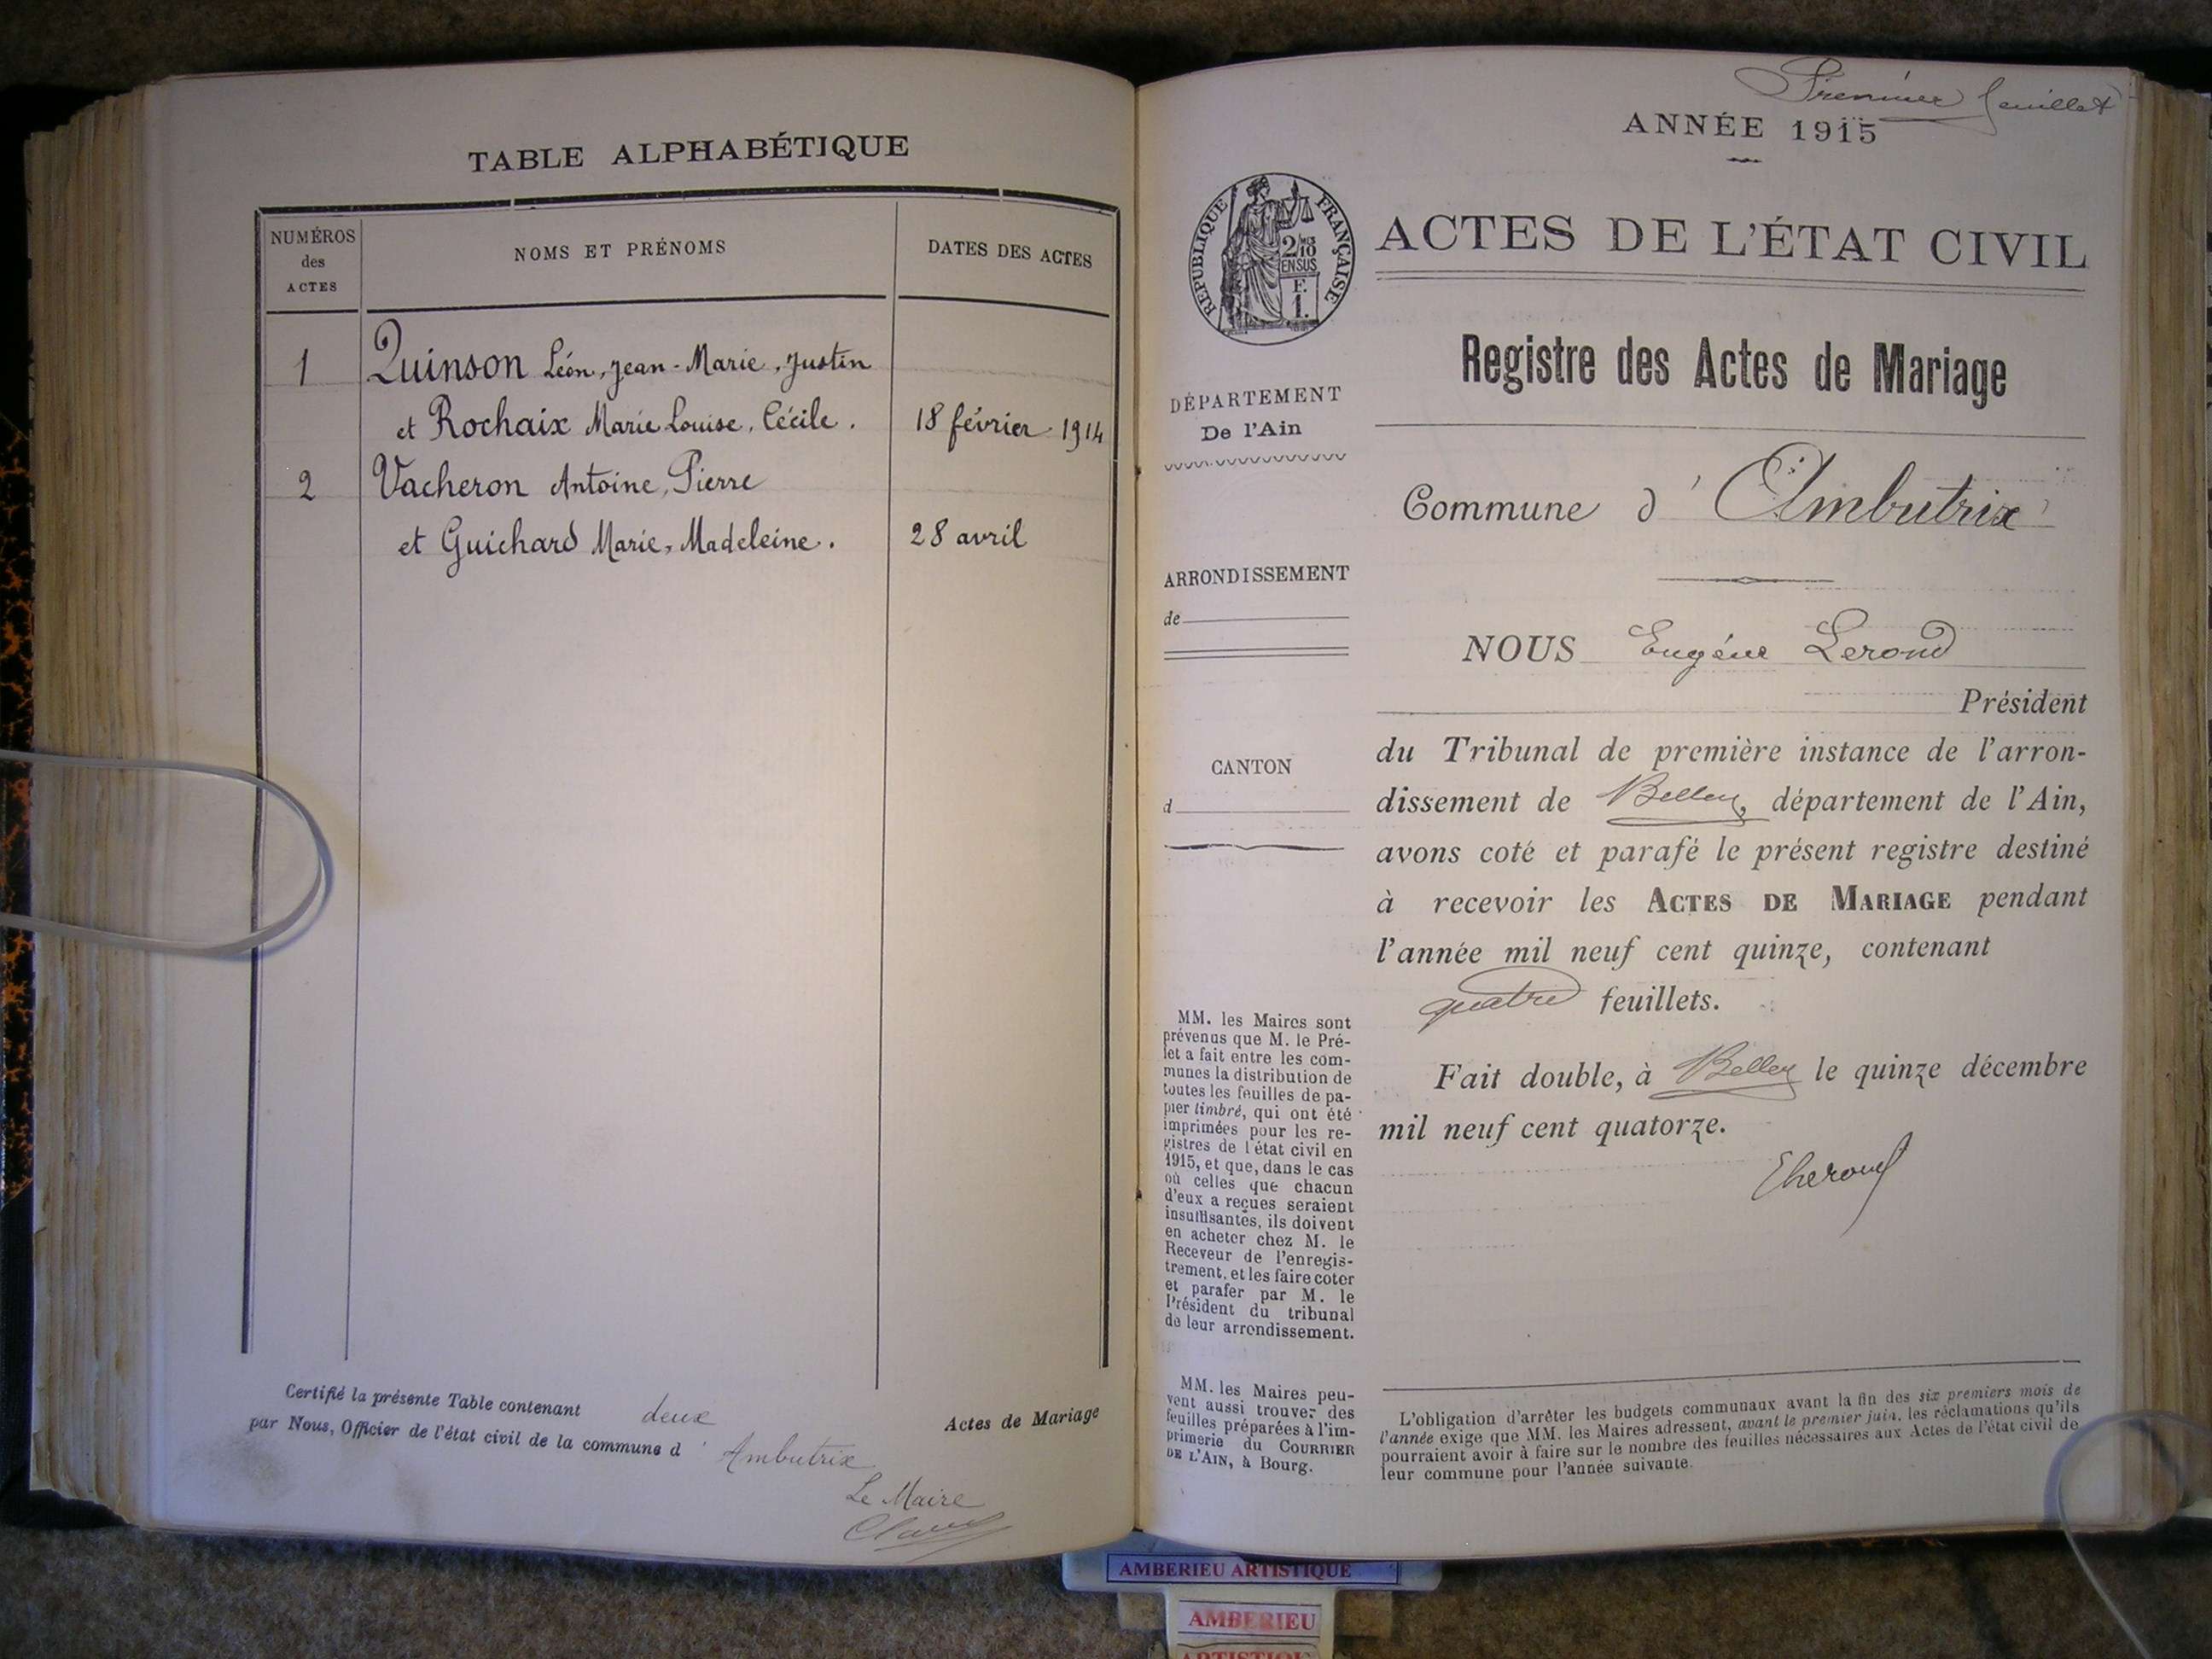 TABLE ALPHABÉTIQUE
NUMÉROS
des
ACTES
NOMS ET PRÉNOMS
DATES DES ACTES
1 Quinson Léon, Jean-Marie, Justin
et Rochaix Marie Louise, Cécile. 18 février 1914
2 Vacheron Antoine, Pierre
et Guichard Marie, Madeleine. 28 avril
Certifié la présente Table contenant deux Actes de Mariage
par Nous, Officier de l'état civil de la commune d'Ambutrix
Le Maire
Premier feuillet
ANNÉE 1915
RÉPUBLIQUE FRANÇAISE
2/10
EN SUS
F.
1.
ACTES DE L'ÉTAT CIVIL
Registre des Actes de Mariage
DÉPARTEMENT
De l'Ain
Commune d'Ambutrix
ARRONDISSEMENT
de
NOUS Eugéne Lerond
Président
CANTON
d
du Tribunal de première instance de l'arron-
dissement de Belley, département de l'Ain,
avons coté et parafé le présent registre destiné
à recevoir les ACTES DE MARIAGE pendant
l'année mil neuf cent quinze, contenant
quatre feuillets.
Fait double, à Belley le quinze décembre
mil neuf cent quatorze.
MM. les Maires sont
prévenus que M. le Pré-
fet a fait entre les com-
munes la distribution de
toutes les feuilles de pa-
pier timbré, qui ont été
imprimées pour les re-
gistres de l'état civil en
1915, et que, dans le cas
où celles que chacun
d'eux a reçues seraient
insuffisantes, ils doivent
en acheter chez M. le
Receveur de l'enregis-
trement, et les faire coter
et parafer par M. le
Président du tribunal
de leur arrondissement.
MM. les Maires peu-
vent aussi trouver des
feuilles préparées à l'im-
primerie du COURRIER
DE L'AIN, à Bourg.
L'obligation d'arrêter les budgets communaux avant la fin des six premiers mois de
l'année exige que MM. les Maires adressent, avant le premier juin, les réclamations qu'ils
pourraient avoir à faire sur le nombre des feuilles nécessaires aux Actes de l'état civil de
leur commune pour l'année suivante.
AMBERIEU ARTISTIQUE
AMBERIEU